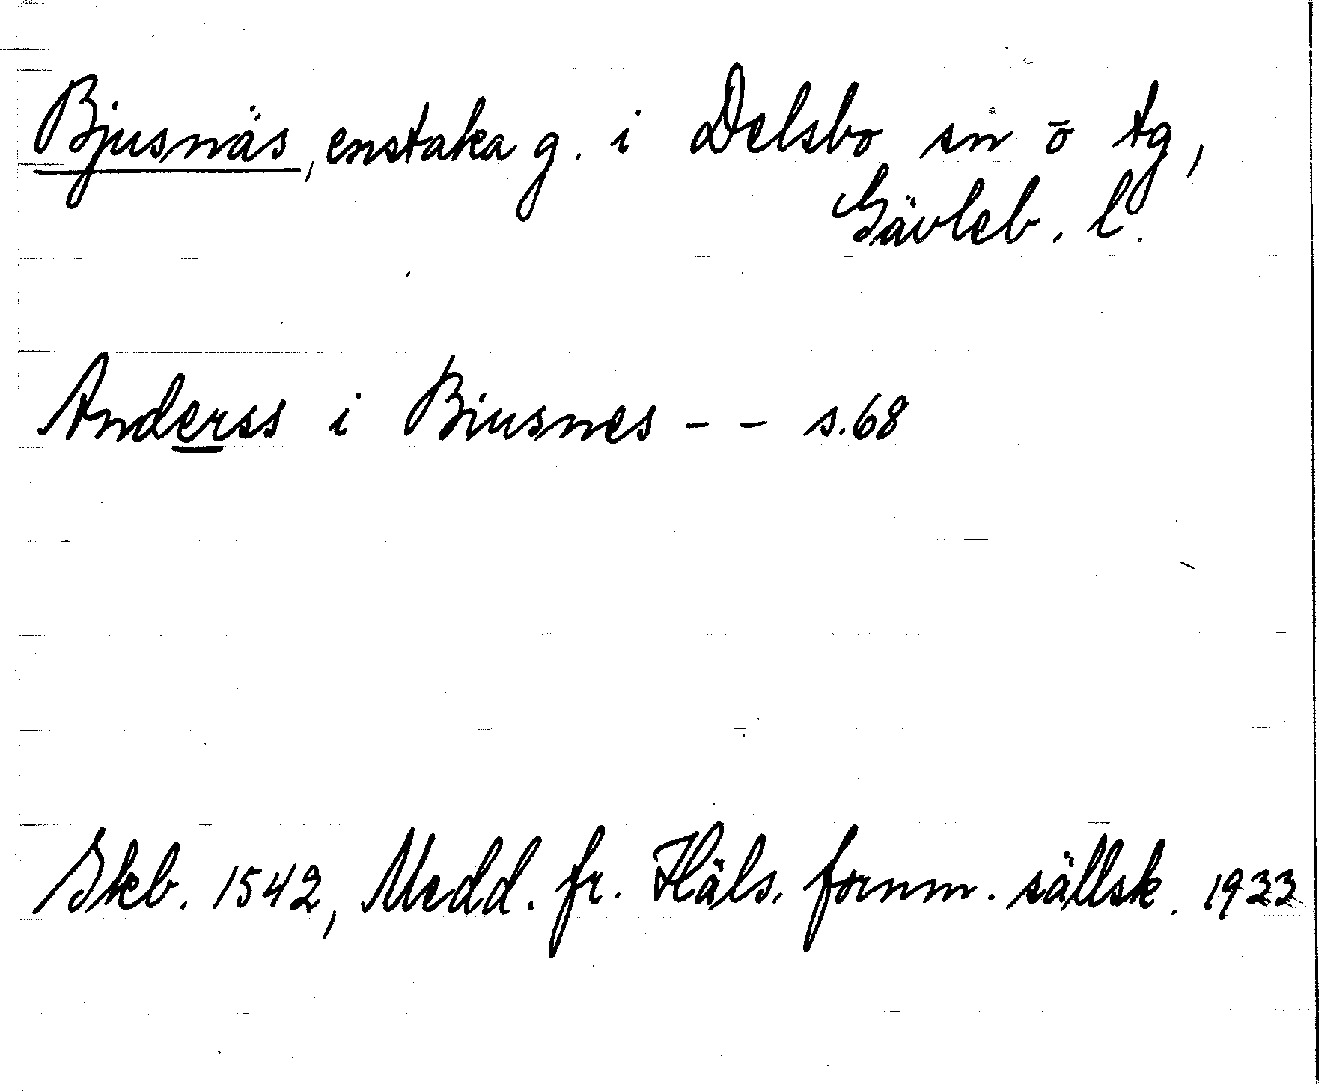 Bjusnäs, enstaka g. i Delsbo sn o tg,
Gävleb. l.
Anderss i Biusnes - - s. 68
Skb. 1542, Medd. fr. Häls. fornm. sällsk. 1933